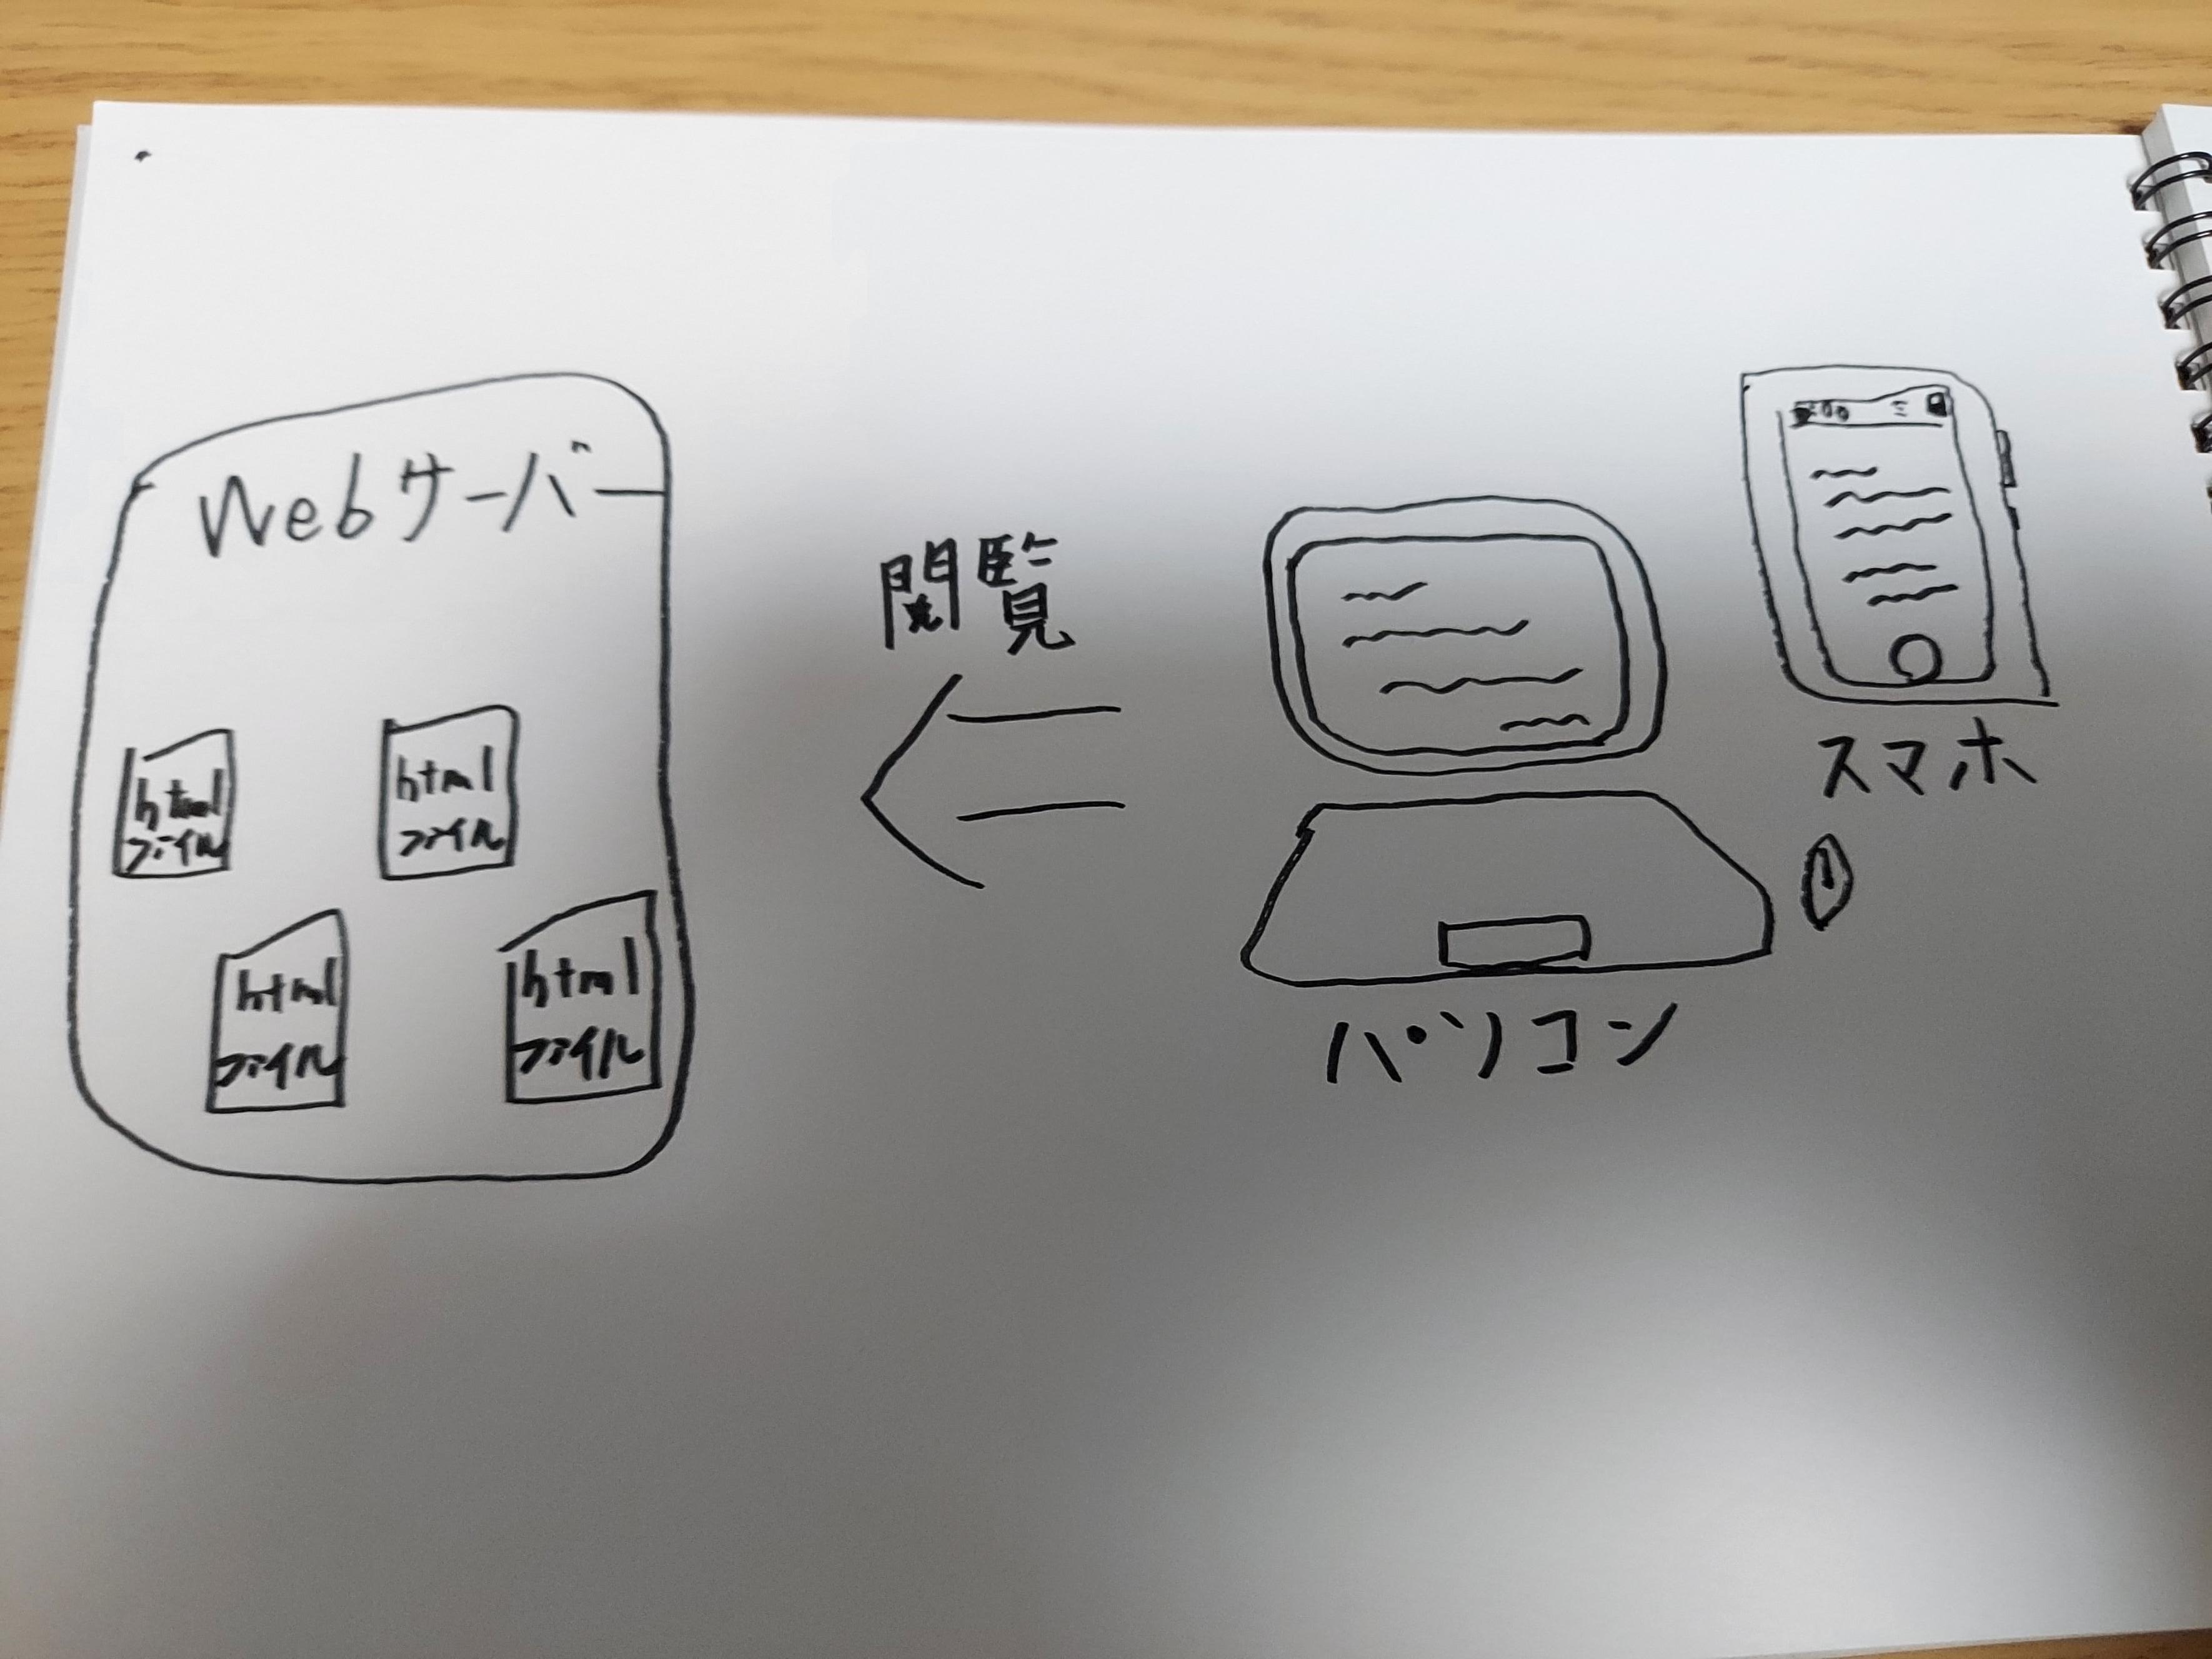 Webサーバー
html
ファイル
html
ファイル
html
ファイル
html
ファイル
閲覧
パソコン
スマホ